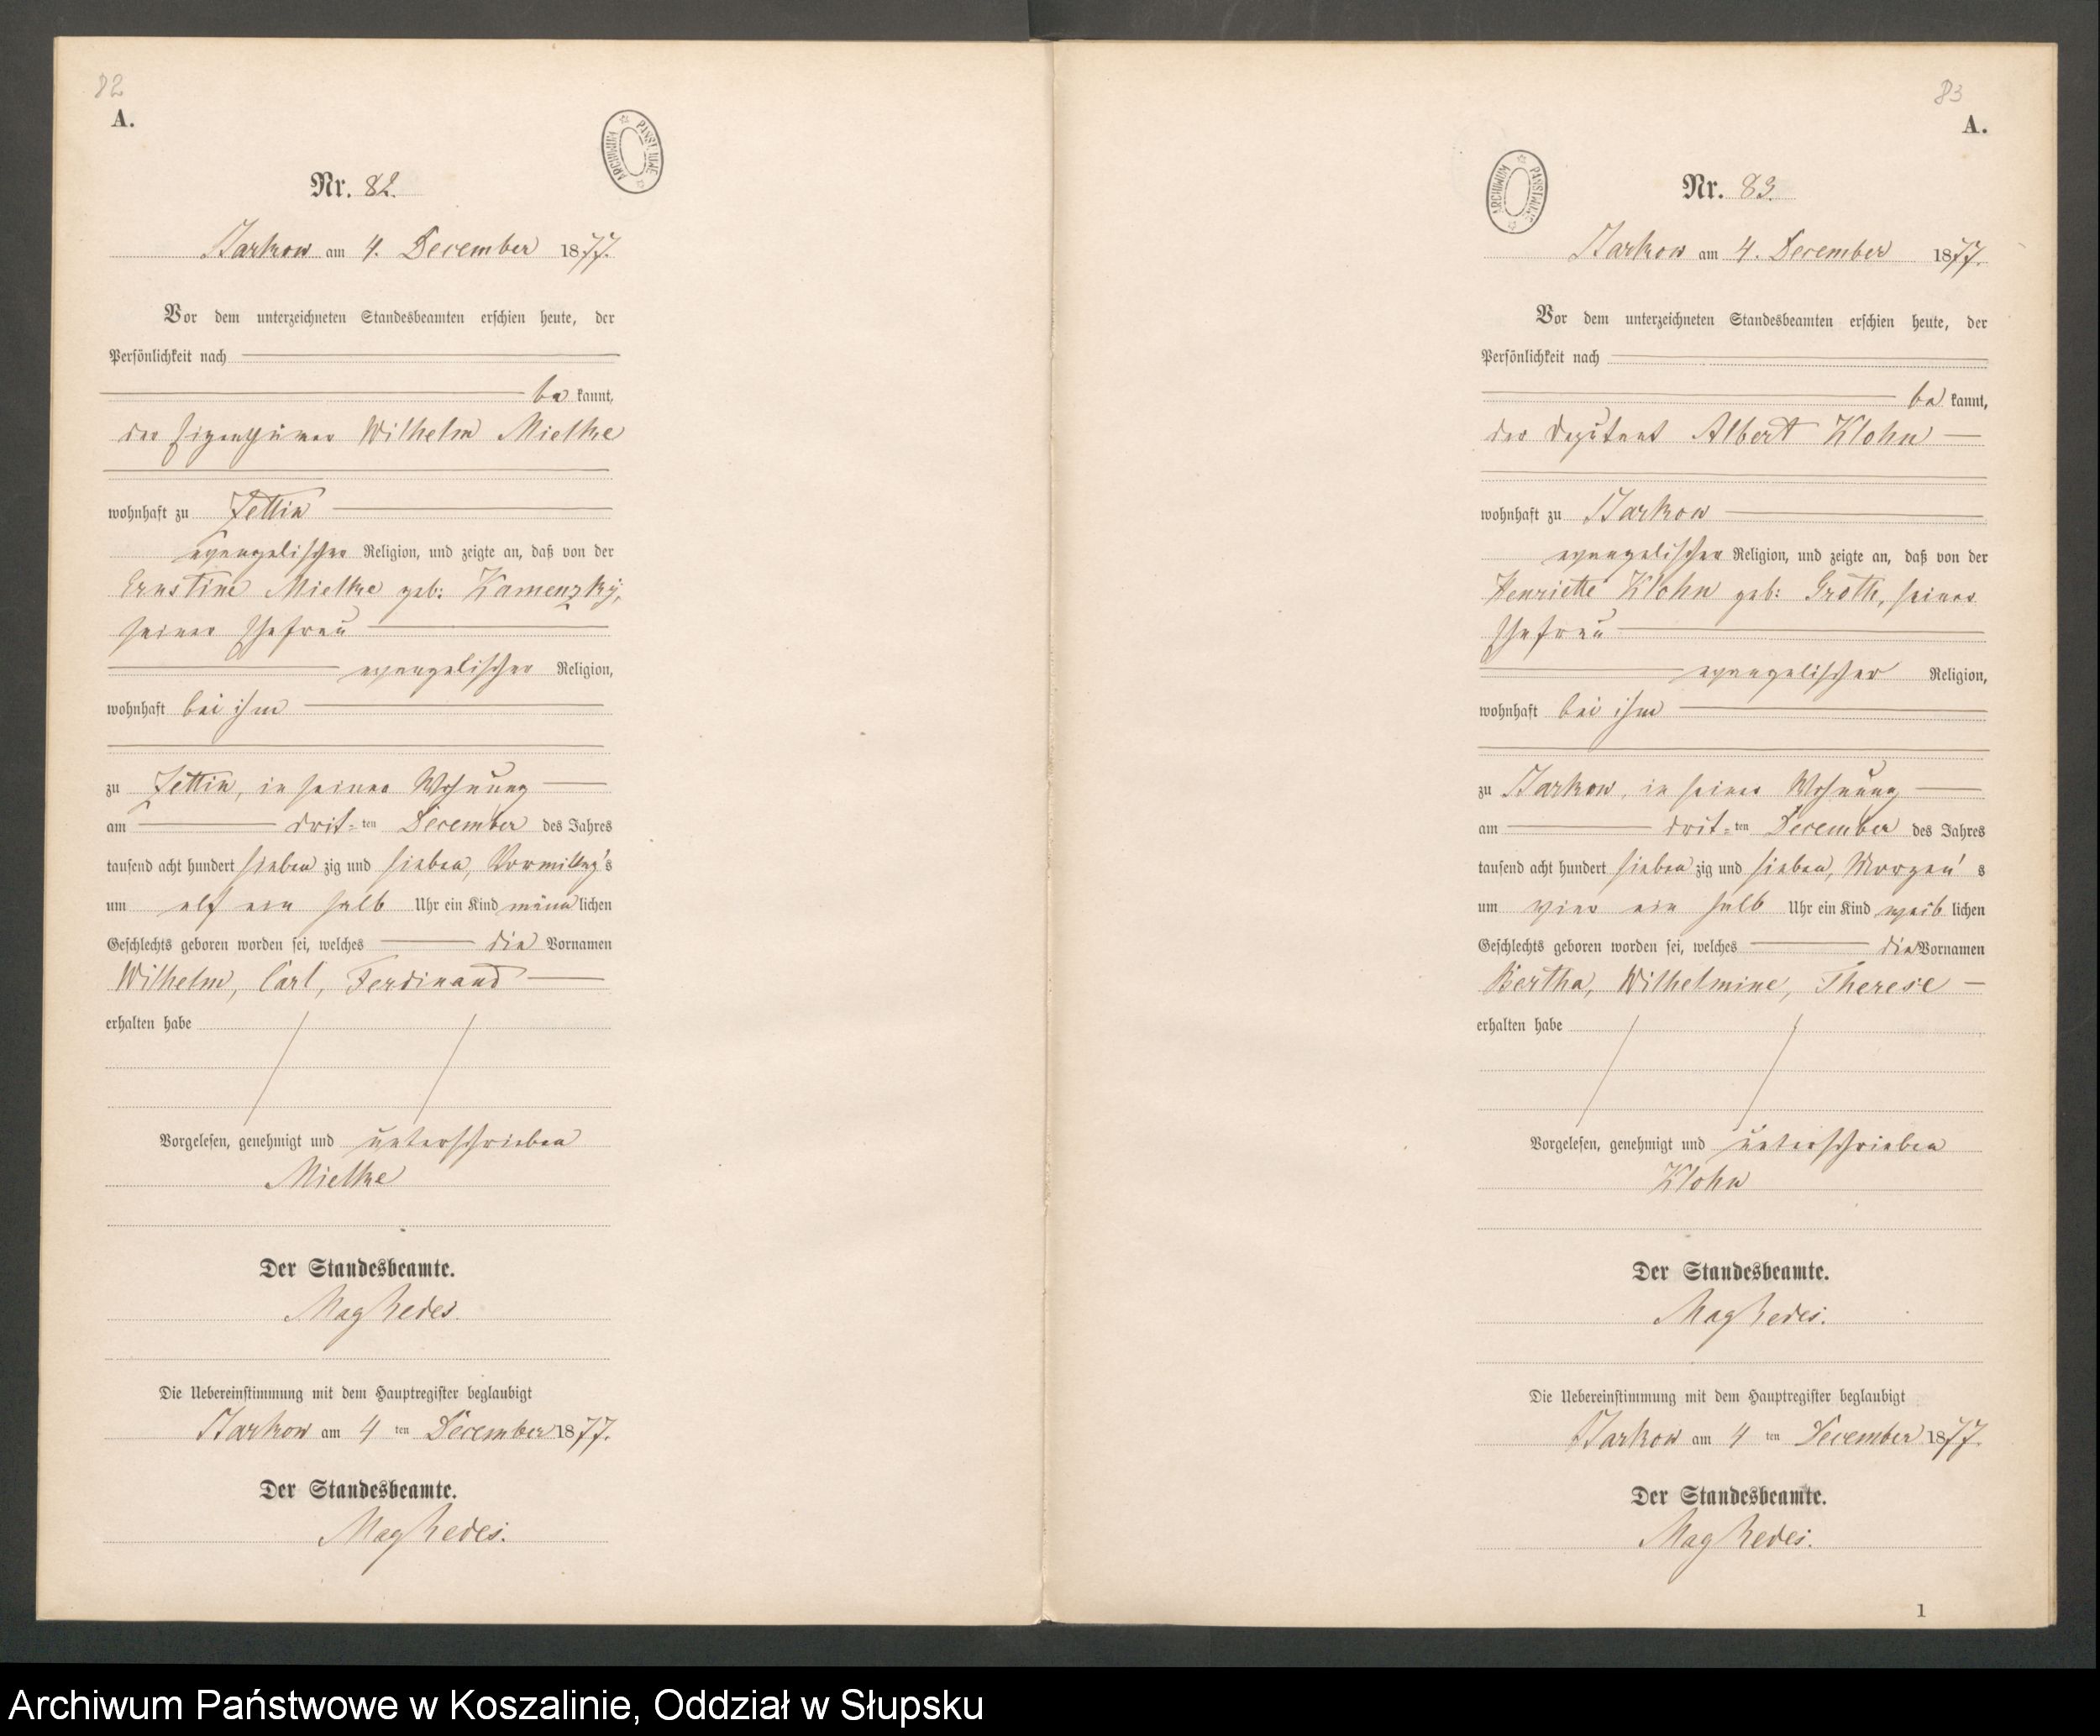 82
A.
Nr. 82.
Barkow am 4. December 1877.
Vor dem unterzeichneten Standesbeamten erschien heute, der
Persönlichkeit nach
be kannt,
der Eigenthümer Wilhelm Mielke
wohnhaft zu Zettin
evangelischer Religion, und zeigte an, daß von der
Ernstine Mielke geb: Kamenzky,
seiner Ehefrau
evangelischer Religion,
wohnhaft bei ihm
zu Zettin, in seiner Wohnung
am drit=ten December des Jahres
tausend acht hundert sieben zig und sieben, Vormittag's
um elf ein halb Uhr ein Kind männlichen
Geschlechts geboren worden sei, welches die Vornamen
Wilhelm, Carl, Ferdinand
erhalten habe
Vorgelesen, genehmigt und unterschrieben
Mielke
Der Standesbeamte.
Die Uebereinstimmung mit dem Hauptregister beglaubigt
Barkow am 4 ten December 1877.
Der Standesbeamte.
83
A.
Nr. 83.
Barkow am 4. December 1877.
Vor dem unterzeichneten Standesbeamten erschien heute, der
Persönlichkeit nach
be kannt,
der Deputant Albert Klohn
wohnhaft zu Barkow
evangelischer Religion, und zeigte an, daß von der
Henriette Klohn geb: Groth, seiner
Ehefrau
evangelischer Religion,
wohnhaft bei ihm
zu Barkow, in seiner Wohnung
am drit=ten December des Jahres
tausend acht hundert sieben zig und sieben, Morgen's
um vier ein halb Uhr ein Kind weiblichen
Geschlechts geboren worden sei, welches die Vornamen
Bertha, Wilhelmine, Therese
erhalten habe
Vorgelesen, genehmigt und unterschrieben
Klohn
Der Standesbeamte.
Die Uebereinstimmung mit dem Hauptregister beglaubigt
Barkow am 4 ten December 1877.
Der Standesbeamte.
1
Archiwum Państwowe w Koszalinie, Oddział w Słupsku